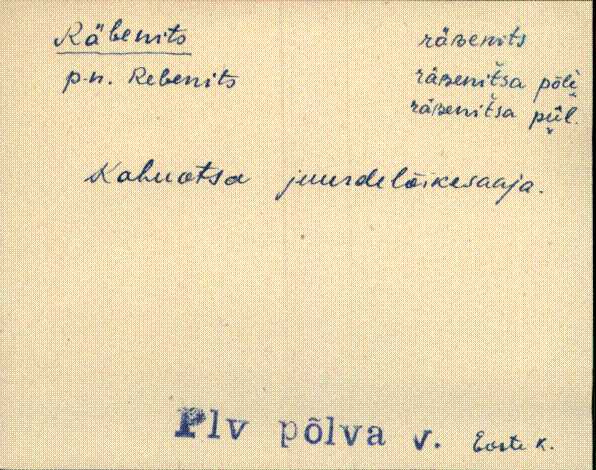 Räbenits
p.n. Rebenits
räʙenits
räʙenitša põlì
räʙenitša pǜl.
Kahuotsa juurdelõikesaaja.
Plv põlva v. Eoste k.